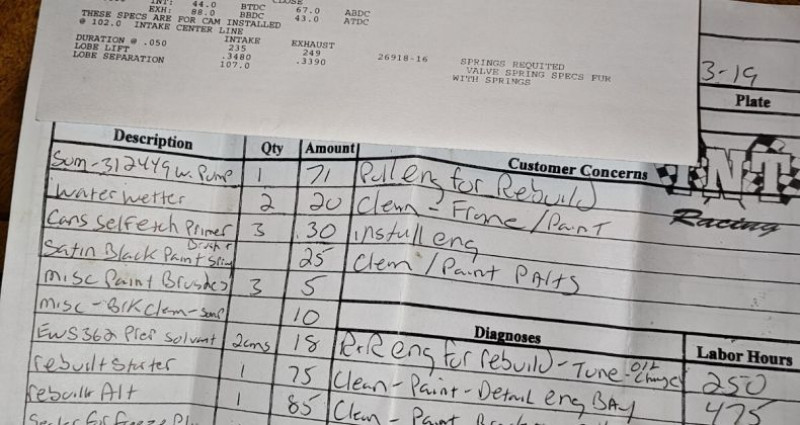 INT: 44.0 BTDC 67.0 ABDC
EXH: 88.0 BBDC 43.0 ATDC
THESE SPECS ARE FOR CAM INSTALLED
@ 102.0 INTAKE CENTER LINE
INTAKE EXHAUST
DURATION @ .050 235 249
LOBE LIFT .3480 .3390
LOBE SEPARATION 107.0
26918-16 SPRINGS REQUITED
VALVE SPRING SPECS FUR
WITH SPRINGS
3-19
Plate
Description Qty Amount Customer Concerns
TNT
Racing
Sum-312449 w. Pump 1 71 Pull eng for Rebuild
water wetter 2 20 Clean - Frame / Paint
Cans Self etch Primer 3 30 install eng
Satin Black Paint 25 Clean / Paint Parts
misc Paint Brushes 3 5
misc - Brk Clean - 10
Diagnoses Labor Hours
EWS362 Prep Solvent 2cans 18 R+R eng for rebuild - Tune - Oil Change 250
rebuilt starter 1 75 Clean - Paint - Detail eng BAY 475
rebuilt Alt 1 85 Clean - Paint